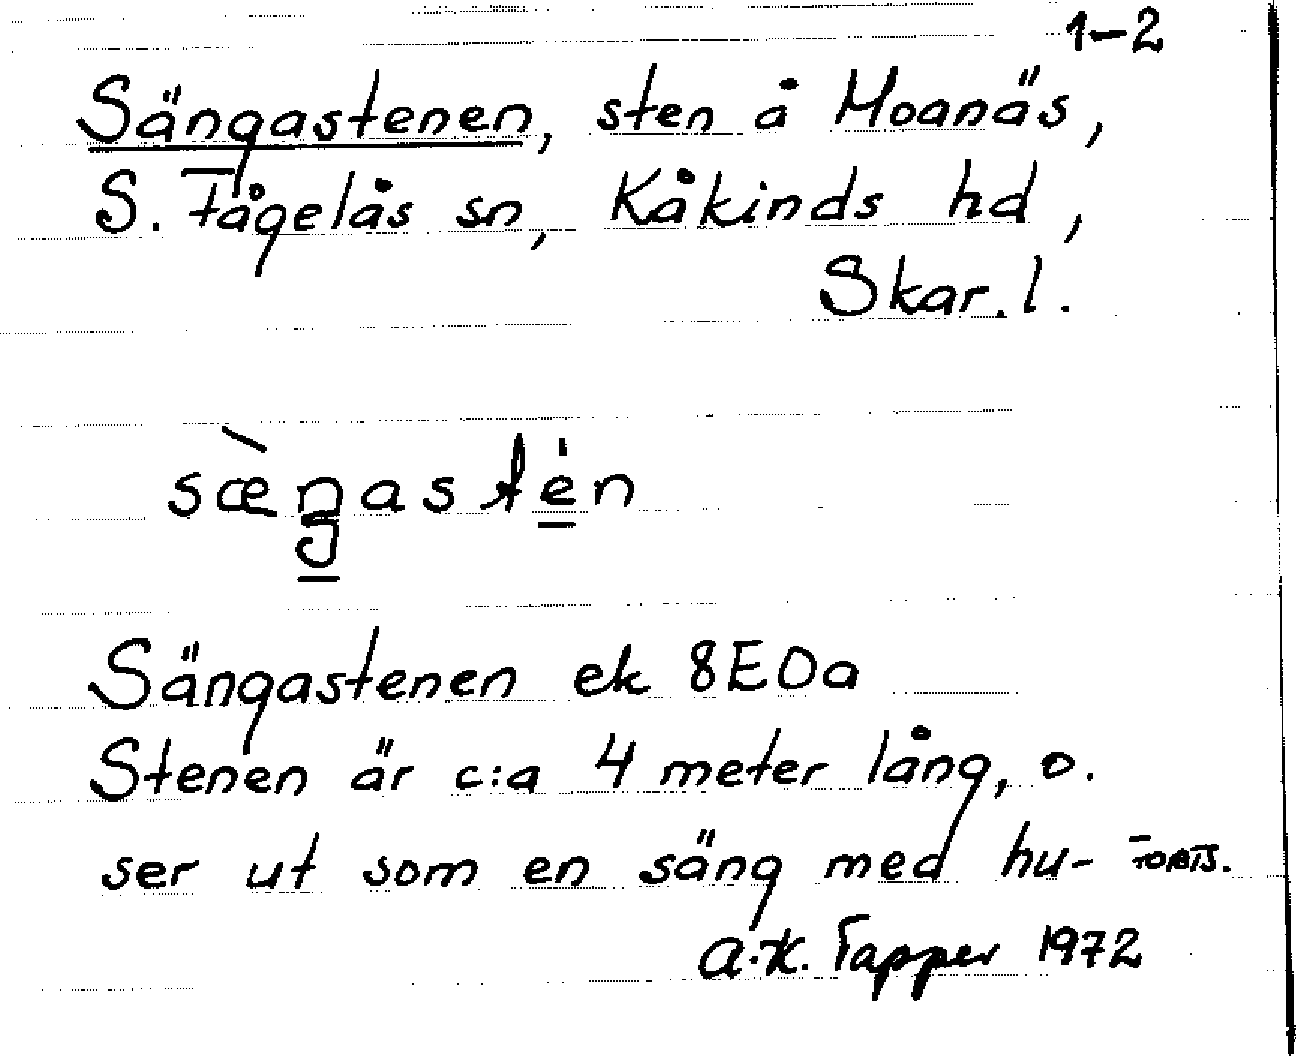 1-2
Sängastenen, sten å Moanäs,
S. Fågelås sn, Kåkinds hd,
Skar. l.
sæ̀ŋastėn
Sängastenen ek 8E0a
Stenen är c:a 4 meter lång, o.
ser ut som en säng med hu- FORTS.
A.K. Tapper 1972